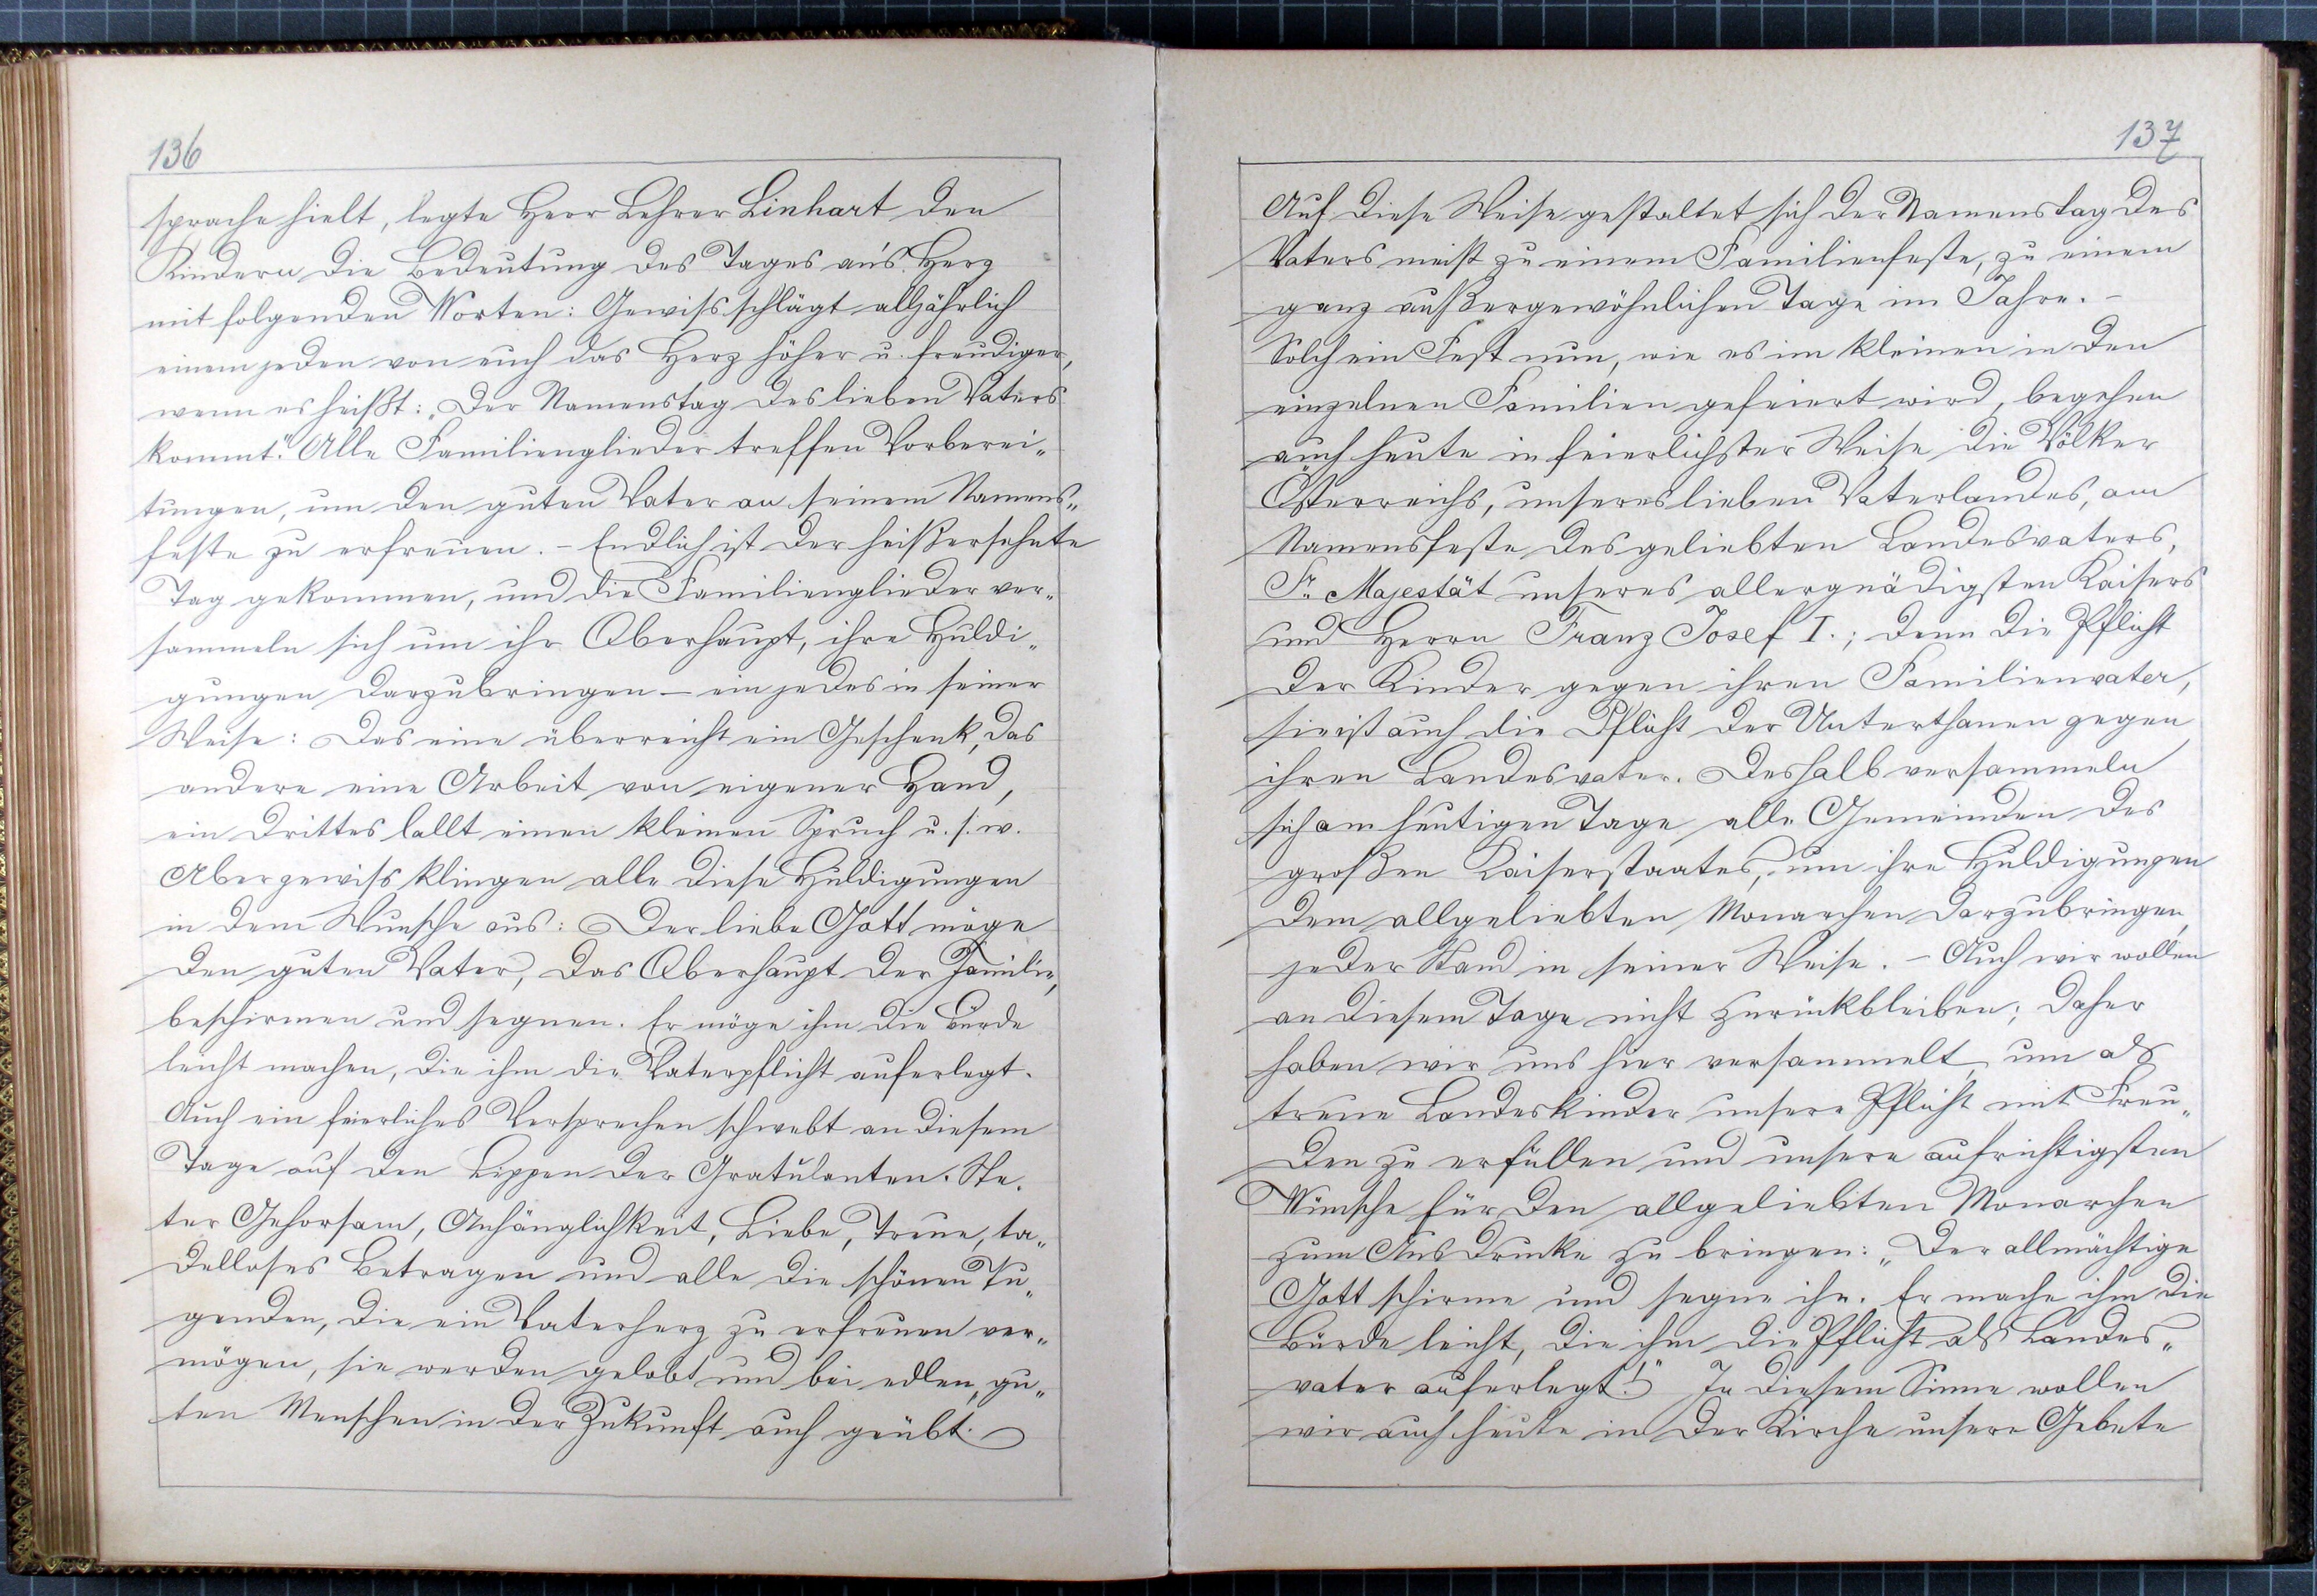 136
sprache hielt, legte Herr Lehrer Linhart den
Kindern die Bedeutung des Tages an's Herz
mit folgenden Worten: Gewiss schlägt alljährlich
einem jeden von euch das Herz höher u. freudiger,
wenn es heißt: „Der Namenstag des lieben Vaters
kommt." Alle Familienglieder treffen Vorberei„
tungen, um den guten Vater an seinem Namens„
feste zu erfreuen. – Endlich ist der heißersehnte
Tag gekommen, und die Familienglieder ver„
sammeln sich um ihr Oberhaupt, ihre Huldi„
gungen darzubringen – ein jedes in seiner
Weise: Das eine überreicht ein Geschenk, das
andere eine Arbeit von eigener Hand,
ein drittes lallt einen kleinen Spruch u. s. w.
Aber gewiss klingen alle diese Huldigungen
in dem Wunsche aus: Der liebe Gott möge
den guten Vater, das Oberhaupt der Familie,
beschirmen und segnen. Er möge ihm die Bürde
leicht machen, die ihm die Vaterpflicht auferlegt.
Auch ein feierliches Versprechen schwebt an diesem
Tage auf den Lippen der Gratulanten. Ste„
ter Gehorsam, Anhänglichkeit, Liebe, Treue, ta„
delloses Betragen und alle die schönen Tu„
genden, die ein Vaterherz zu erfreuen ver„
mögen, sie werden gelobt und bei edlen, gu„
ten Menschen in der Zukunft auch geübt.
137
Auf diese Weise gestaltet sich der Namenstag des
Vaters meist zu einem Familienfeste, zu einem
ganz außergewöhnlichen Tage im Jahre. –
Solch ein Fest nun, wie es im kleinen in den
einzelnen Familien gefeiert wird, begehen
auch heute in feierlichster Weise die Völker
Österreichs, unseres lieben Vaterlandes, am
Namensfeste des geliebten Landesvaters,
Sr. Majestät unseres allergnädigsten Kaisers
und Herrn Franz Josef I.; denn die Pflicht
der Kinder gegen ihren Familienvater,
sie ist auch die Pflicht der Unterthanen gegen
ihren Landesvater. Deshalb versammeln
sich am heutigen Tage alle Gemeinden des
großen Kaiserstaates, um ihre Huldigungen
dem allgeliebten Monarchen darzubringen,
jeder Stand in seiner Weise. – Auch wir wollen
an diesem Tage nicht zurückbleiben; daher
haben wir uns hier versammelt, um als
treue Landeskinder unsere Pflicht mit Freu„
den zu erfüllen und unsere aufrichtigsten
Wünsche für den allgeliebten Monarchen
zum Ausdrucke zu bringen: „Der allmächtige
Gott schirme und segne ihn. Er mache ihm die
Bürde leicht, die ihm die Pflicht als Landes„
vater auferlegt!" In diesem Sinne wollen
wir auch heute in der Kirche unsere Gebete